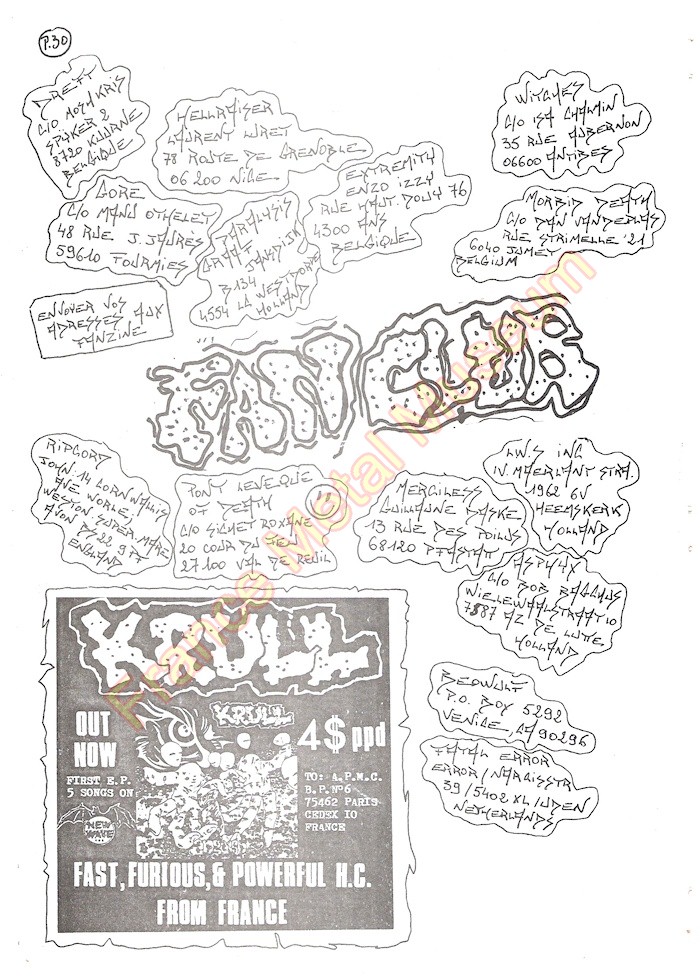 P.30
C/O MOSH KRIS
SPIJKER 2
8720 KUURNE
BELGIQUE
HELLRAISER
LAURENT LURET
78 ROUTE DE GRENOBLE
06200 NICE
EXTREMITY
ENZO IZZY
RUE HAUT. DOUY 76
4300 ANS
BELGIQUE
WITCHES
C/O ISA CHALMIN
35 RUE AUBERNON
06600 ANTIBES
GORE
C/O MANU OTHELET
48 RUE J. JAURÈS
59610 FOURMIES
PARALYSIS
GRAAF JANSDIJK
B 134
4554 LA WESTDORPE
HOLLAND
MORBID DEATH
C/O DAN VANDERLAS
RUE STRIMELLE 21
6040 JUMET
BELGIUM
ENVOYER VOS
ADRESSES AUX
FANZINE
FAN CLUB
RIPCORD
JOHN. 14 CORNWALLIS
AVE WORLE,
WESTON SUPER-MARE
AVON BS 22 9 PT
ENGLAND
PONT LEVEQUE
OF DEATH
C/O SICHET ROXANE
20 COUR DU
27100 VAL DE REUIL
MERCILESS
GUILLAUME BASKE
13 RUE DES POILUS
68120 PFASTAT
L.W.S INC
W. MAERLANT STRA.
1962 GV
HEEMSKERK
HOLLAND
ASPHYX
C/O BOB BAGCHUS
WIELEWAALSTRAAT 10
7887 AZ DE LUTTE
HOLLAND
BEOWULF
P.O. BOX 5292
VENICE, CA 90296
FATAL ERROR
ERROR / NARCISSTR
39 / 5402 XL UDEN
NETHERLANDS
KRULL
KRULL
OUT
NOW
4$ ppd
FIRST E.P.
5 SONGS ON
NEW
WAVE
TO: A.P.M.C.
B.P. N°6
75462 PARIS
CEDEX 10
FRANCE
FAST, FURIOUS, & POWERFUL H.C.
FROM FRANCE
France Metal Museum